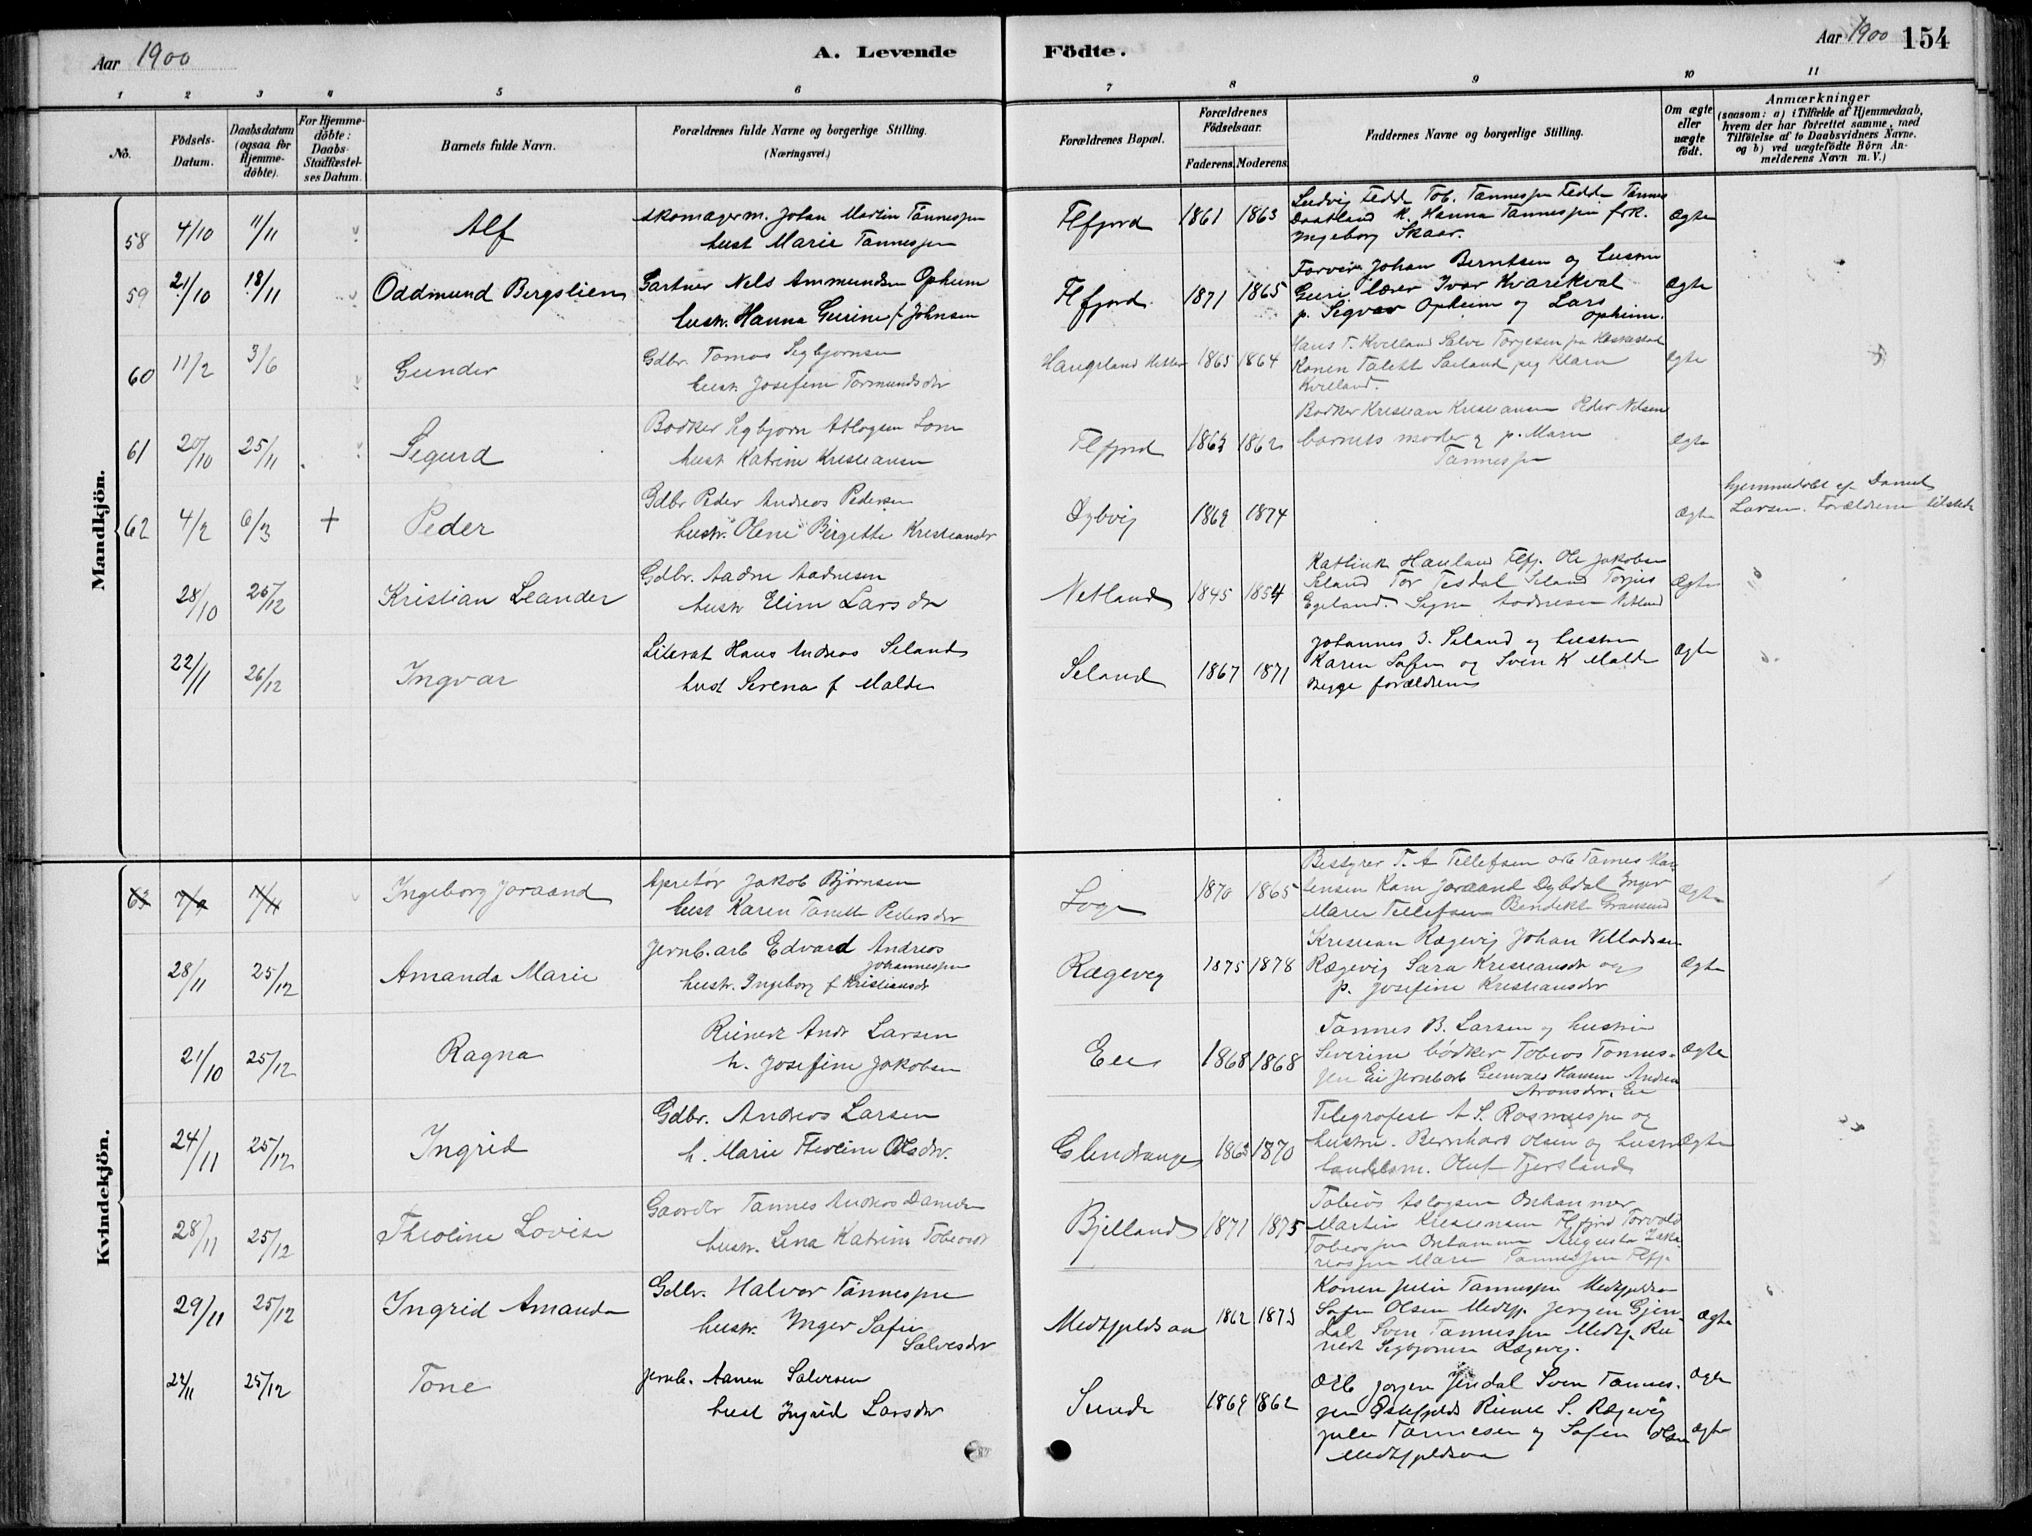 Aar 1900
A. Levende
Födte.
Aar 1900 154
1 2 3 4 5 6 7 8 9 10 11
Nö.
Födsels-Datum.
Daabsdatum (ogsaa for Hjemme-döbte).
For Hjemme-döbte: Daabs-Stadfæstel-ses Datum.
Barnets fulde Navn.
Forældrenes fulde Navne og borgerlige Stilling.
(Næringsvei.)
Forældrenes Bopæl.
Forældrenes Födselsaar.
Faderens. Moderens.
Faddernes Navne og borgerlige Stilling.
Om ægte eller uægte födt.
Anmærkninger
(saasom: a) i Tilfælde af Hjemmedaab,
hvem der har forrettet samme, med
Tilföielse af to Daabsvidners Navne.
og b) ved uægtefödte Börn An-
melderens Navn m. V.)
Mandkjön.
58 4/10 11/11 Alf
Skomagerm. Johan Martin Tønnesen
hust Marie Tønnesen
Flfjord 1861 1863
Ludvig Fedde Tob. Tønnesen Fedde Tønnes
K. Hanna Tønnesen frk.
Ingeborg Skaar.
Ægte
59 21/10 18/11 Oddmund Bergslien
Gartner Nels Ammundsen Opheim
hustr. Hanna Gurine f Johnsen
Flfjord 1871 1865
Farver Johan Berntsen og hustru
Guri lærer Ivar Kvarekval
p. Sigvar Opheim og Lars
Opheim.
Ægte
60 11/2 3/6 Gunder
Gdbr. Tomas Segbjørnsen
hustr. Josefine Tormundsdtr
Haugeland 1865 1864
Hans T. Kvelland Salve Torjesen
Konen Talette Sæland pig Klara
Kvelland.
Ægte
61 20/10 25/11 Sigurd
Bødker Sigbjørn Atlogsen
hust Katrine Kristiansen
Flfjord 1863 1862
Bødker Kristian Kristiansen Peder Nelsen
barnets moder & p. Marn
Tønnesen
Ægte
62 4/2 6/3 + Peder
Gdbr Peder Andreas Pedersen
hustr. Olene Birgitte Kristiansdtr
Dybvig 1869 1874
Ægte
hjemmedøbt af Daniel
Larsen. Forældrene tilstede
28/10 26/12 Kristian Leander
Gdbr. Aadne Aadnesen
hustr Eline Larsdtr
Netland 1845 1854
Hauland Flfj. Ole Jakobsen
Sland Tor Tesdal Seland Torjus
Egeland. Signe Aadnesen Netland
Ægte
22/11 26/12 Ingvar
Literat Hans Andreas Seland
hust Serena f Malde
Seland 1867 1871
Johannes J. Seland og hustru
Karen Sofie og Sven K Malde
Begge forældrene
Ægte
Kvindekjön.
63 7/9 11/11 Ingeborg Joraand
Apretør Jakob Bjørnsen
hust Karen Tonette Pedersdtr
Loge 1870 1865
Bestyrer T. A Tellefsen arb Tønnes
Kone Joraand Dybdal Inger
Marie Tellefsen Bendikte
Ægte
28/11 25/12 Amanda Marie
Jernb.arb Edvard Andreas
Johannesen
hustr. Ingeborg f Kristiansdtr
Rægevig 1875 1878
Kristian Rægevig Johan Villadsen
Rægevig Sara Kristiansdtr og
p. Josefine Kristiansdtr
Ægte
21/10 25/12 Ragna
Reinert Andr Larsen
h. Josefine Jakobsen
Eie 1868 1868
Tønnes B. Larsen og hustru
Severine bødker Tobias Tønnes-
sen Eie Jernbarb Gunvald Hansen Andrea
Aronsdtr. Eie
Ægte
24/11 25/12 Ingrid
Gdbr. Andreas Larsen
h. Marie Theoline Olsdtr.
Glendrange 1863 1870
Telegrafest A S. Rasmussen og
hustru. Bernhard Olsen og hustru
handelsm. Oluf Tjersland
Ægte
28/11 25/12 Theoline Lovise
Gaardbr Tønnes Andreas Danielsen
hustr. Lena Katrine Tobiasdtr
Bjelland 1871 1875
Tobias Aslagsen Oxhammer
Martin Kristensen Flfjord Torvald
Tobiassen Oxhammer Augusta Zaka-
riassen Maren Tønnessen Flfj.
29/11 25/12 Ingrid Amanda
Gdbr. Halvor Tønnesen
hustr. Inger Sofie
Salvesdtr
Medhjeldsaa 1862 1873
Konen Julie Tønnesen
Sofie Olsen Jørgen Gjen-
dal Sven Tønnesen Rei-
nert Segbjørnsen Rægevig.
Ægte
24/11 25/12 Tone
Jernb. Aanen Salvesen
hust Ingrid Larsdtr
Sunde 1869 1862
Arb Jørgen Jendal Sven Tønnes-
sen Reinert S. Rægevig
Julie Tønnesen og Sofie Olsen
Ægte
Ægte